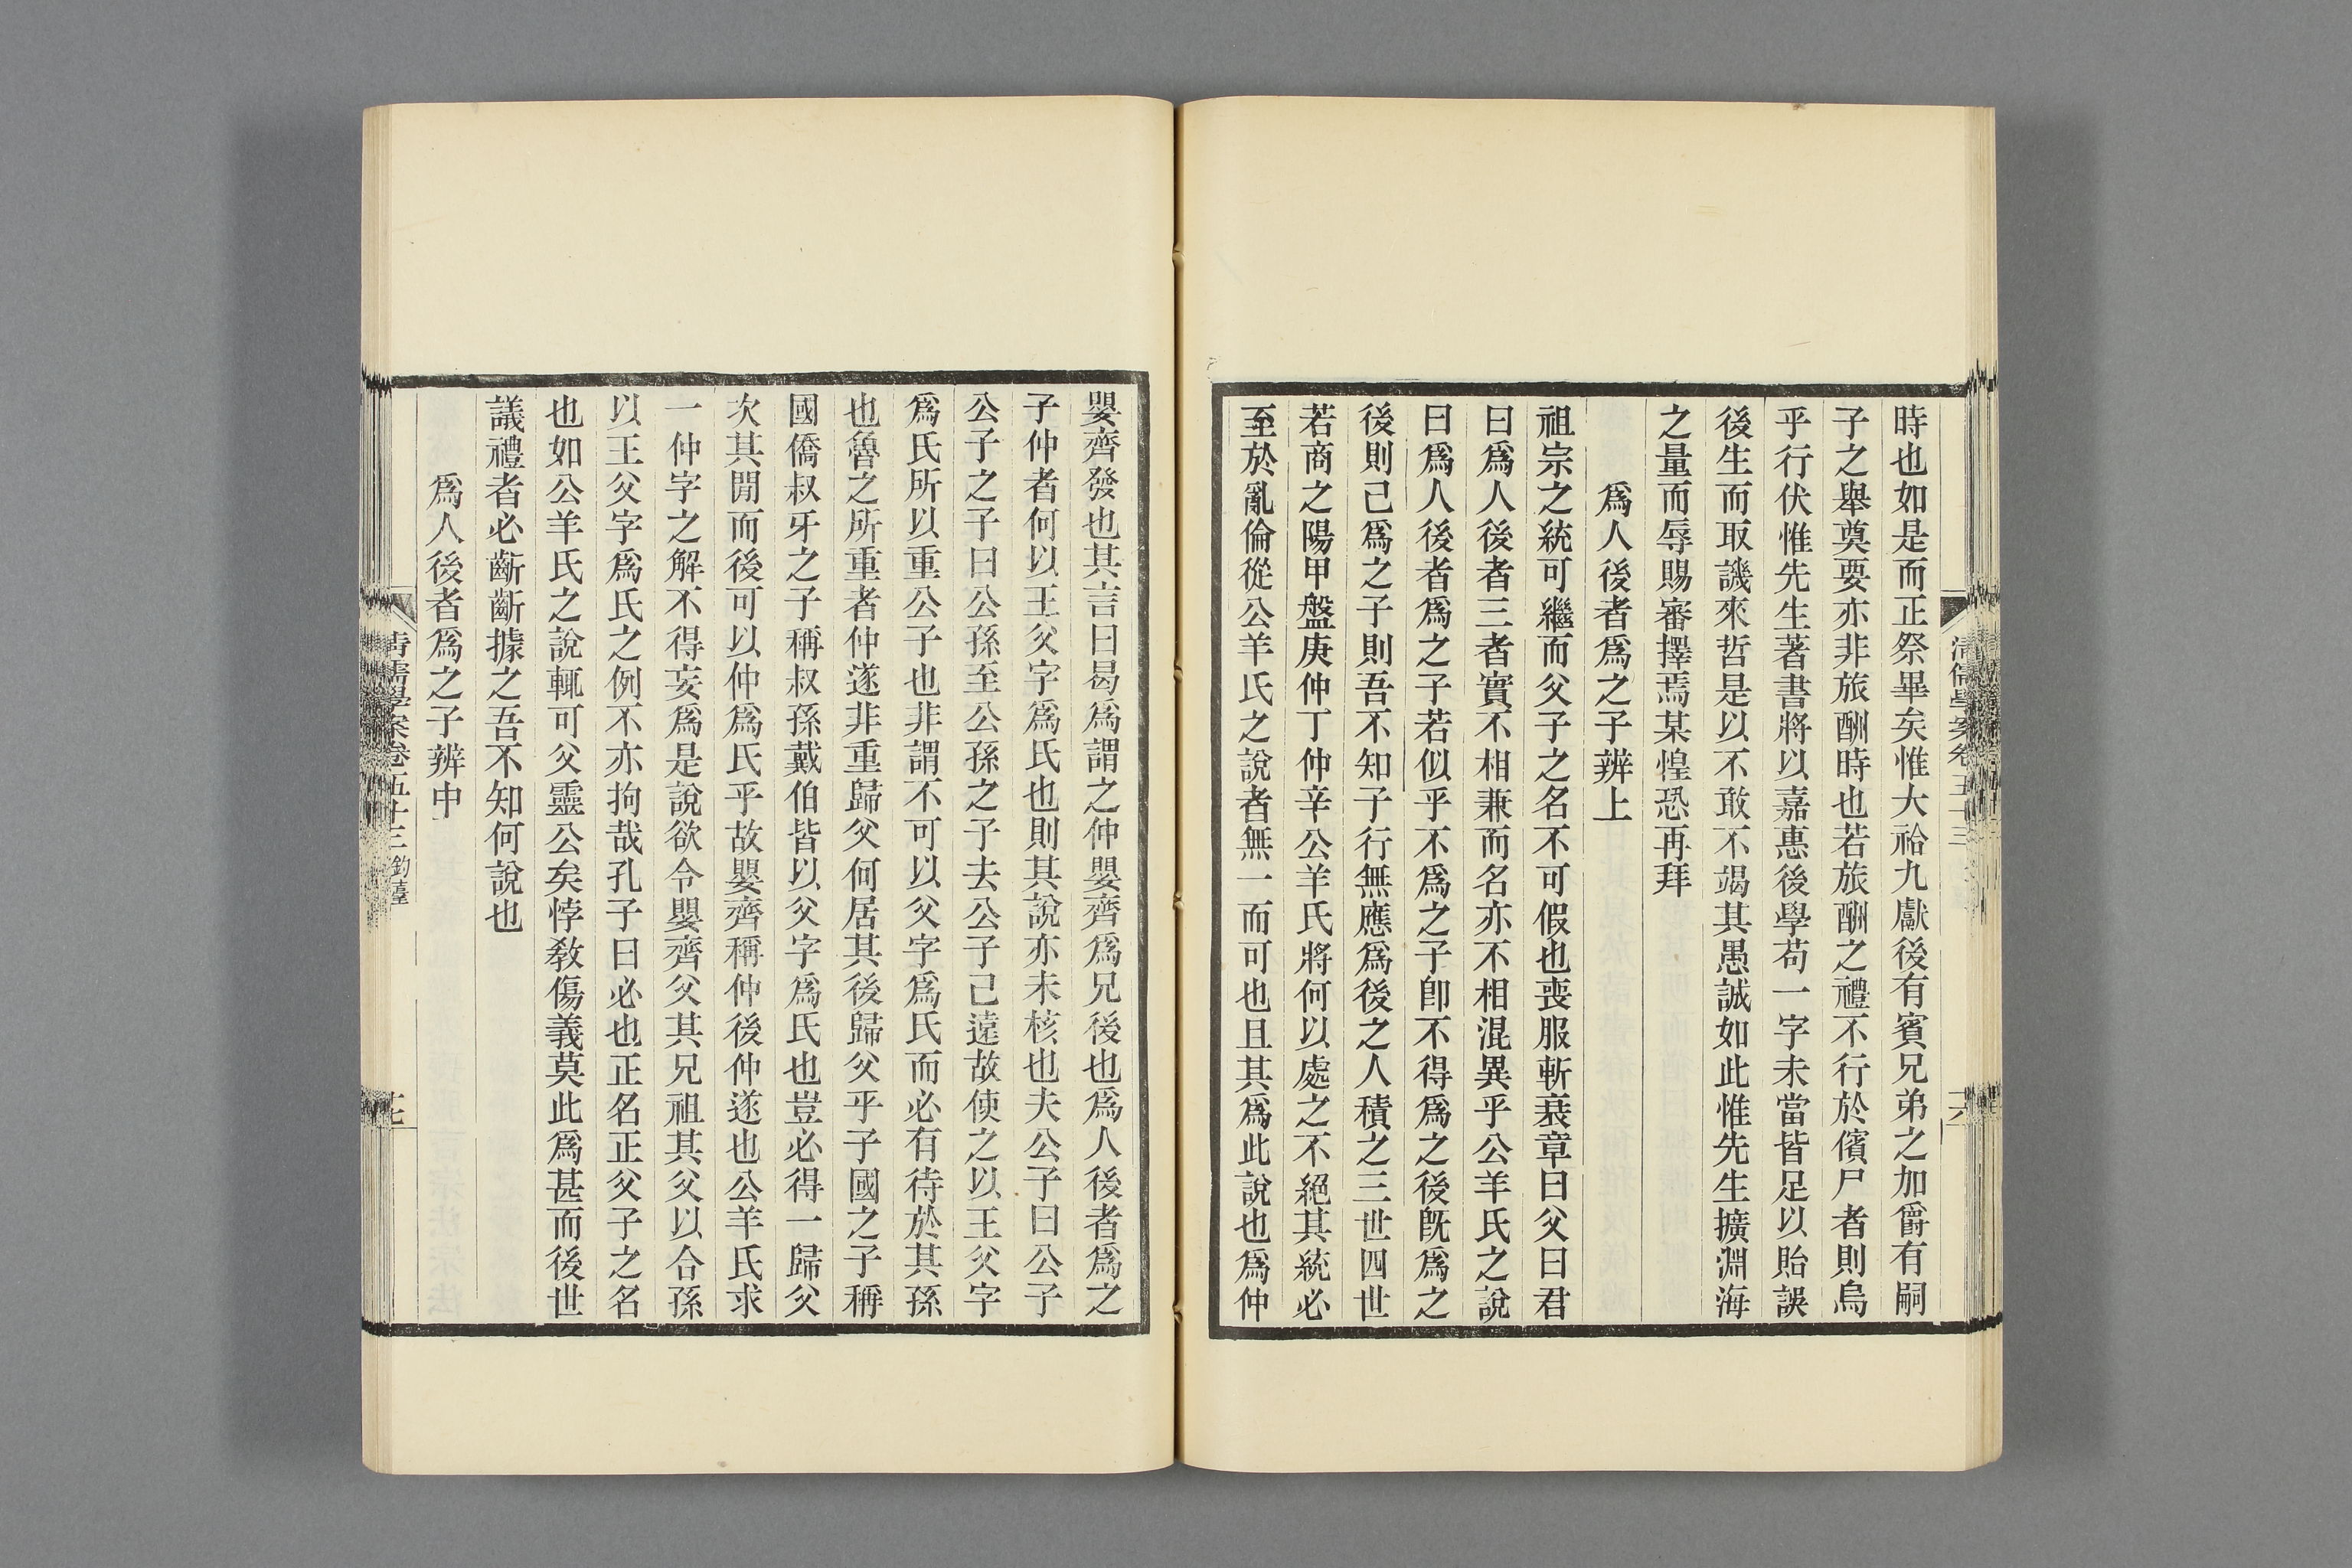 時也如是而正祭畢矣惟大祫九獻後有賓兄弟之加爵有嗣
子之舉奠要亦非旅酬時也若旅酬之禮不行於儐尸者則烏
乎行伏惟先生著書將以嘉惠後學苟一字未當皆足以貽誤
後生而取譏來哲是以不敢不竭其愚誠如此惟先生擴淵海
之量而辱賜審擇焉某惶恐再拜
爲人後者爲之子辨上
祖宗之統可繼而父子之名不可假也喪服斬衰章曰父曰君
曰爲人後者三者實不相兼而名亦不相混異乎公羊氏之說
曰爲人後者爲之子若似乎不爲之子卽不得爲之後旣爲之
後則己爲之子則吾不知子行無應爲後之人積之三世四世
若商之陽甲盤庚仲丁仲辛公羊氏將何以處之不絕其統必
至於亂倫從公羊氏之說者無一而可也且其爲此說也爲仲
嬰齊發也其言曰曷爲謂之仲嬰齊爲兄後也爲人後者爲之
子仲者何以王父字爲氏也則其說亦未核也夫公子曰公子
公子之子曰公孫至公孫之子去公子己遠故使之以王父字
爲氏所以重公子也非謂不可以父字爲氏而必有待於其孫
也魯之所重者仲遂非重歸父何居其後歸父乎子國之子稱
國僑叔牙之子稱叔孫戴伯皆以父字爲氏也豈必得一歸父
次其閒而後可以仲爲氏乎故嬰齊稱仲後仲遂也公羊氏求
一仲字之解不得妄爲是說欲令嬰齊父其兄祖其父以合孫
以王父字爲氏之例不亦拘哉孔子曰必也正名正父子之名
也如公羊氏之說輒可父靈公矣悖敎傷義莫此爲甚而後世
議禮者必齗齗據之吾不知何說也
爲人後者爲之子辨中
清儒學案卷五十三 鈞臺
十七
清儒學案卷五十三
十六